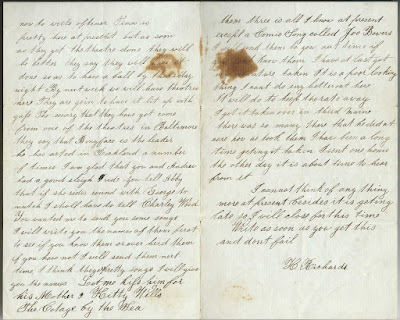 nor to write oftener Time is
pretty here at present but as soon
as they get the theatre done they will
be better they say they will
done so as to have a ball by thursday
night By next week we will have theatre
here They are goin to have it lit up with
gass The scenery that they has got come
from one of the theatres in Baltimore
they say that Bonnfare is the leader
he has acted in Portland a number
of times I am glad that you and Andrew
had a good sleigh Ride You tell Abby
that if she rides round with George to
much I shall have to tell Charley Wood
You wanted me to send you some songs
I will write you the names of them first
to see if you have them or ever herd them
if you have not I will send them next
time I think they pretty songs I will give
you the names Let me kiss him for
his Mother & Kitty Wells
The Cotage by the Sea
them three is all I know at present
except a Comic Song called Joe Bowers
I will send them to you next time if
you know them I have at last got
my picture taken It is a poor looking
thing I cant do any better out here
It will do to keep the rats away
I got it taken over in third Maine
there was so many there that looked at
me so to look them I have been a long
time geting it taken I sent one home
the other day it is about time to hear
from it
I cannot think of any thing
more at present besides it is geting
late so I will close for this time
Write as soon as you get this
and dont fail
H Richards